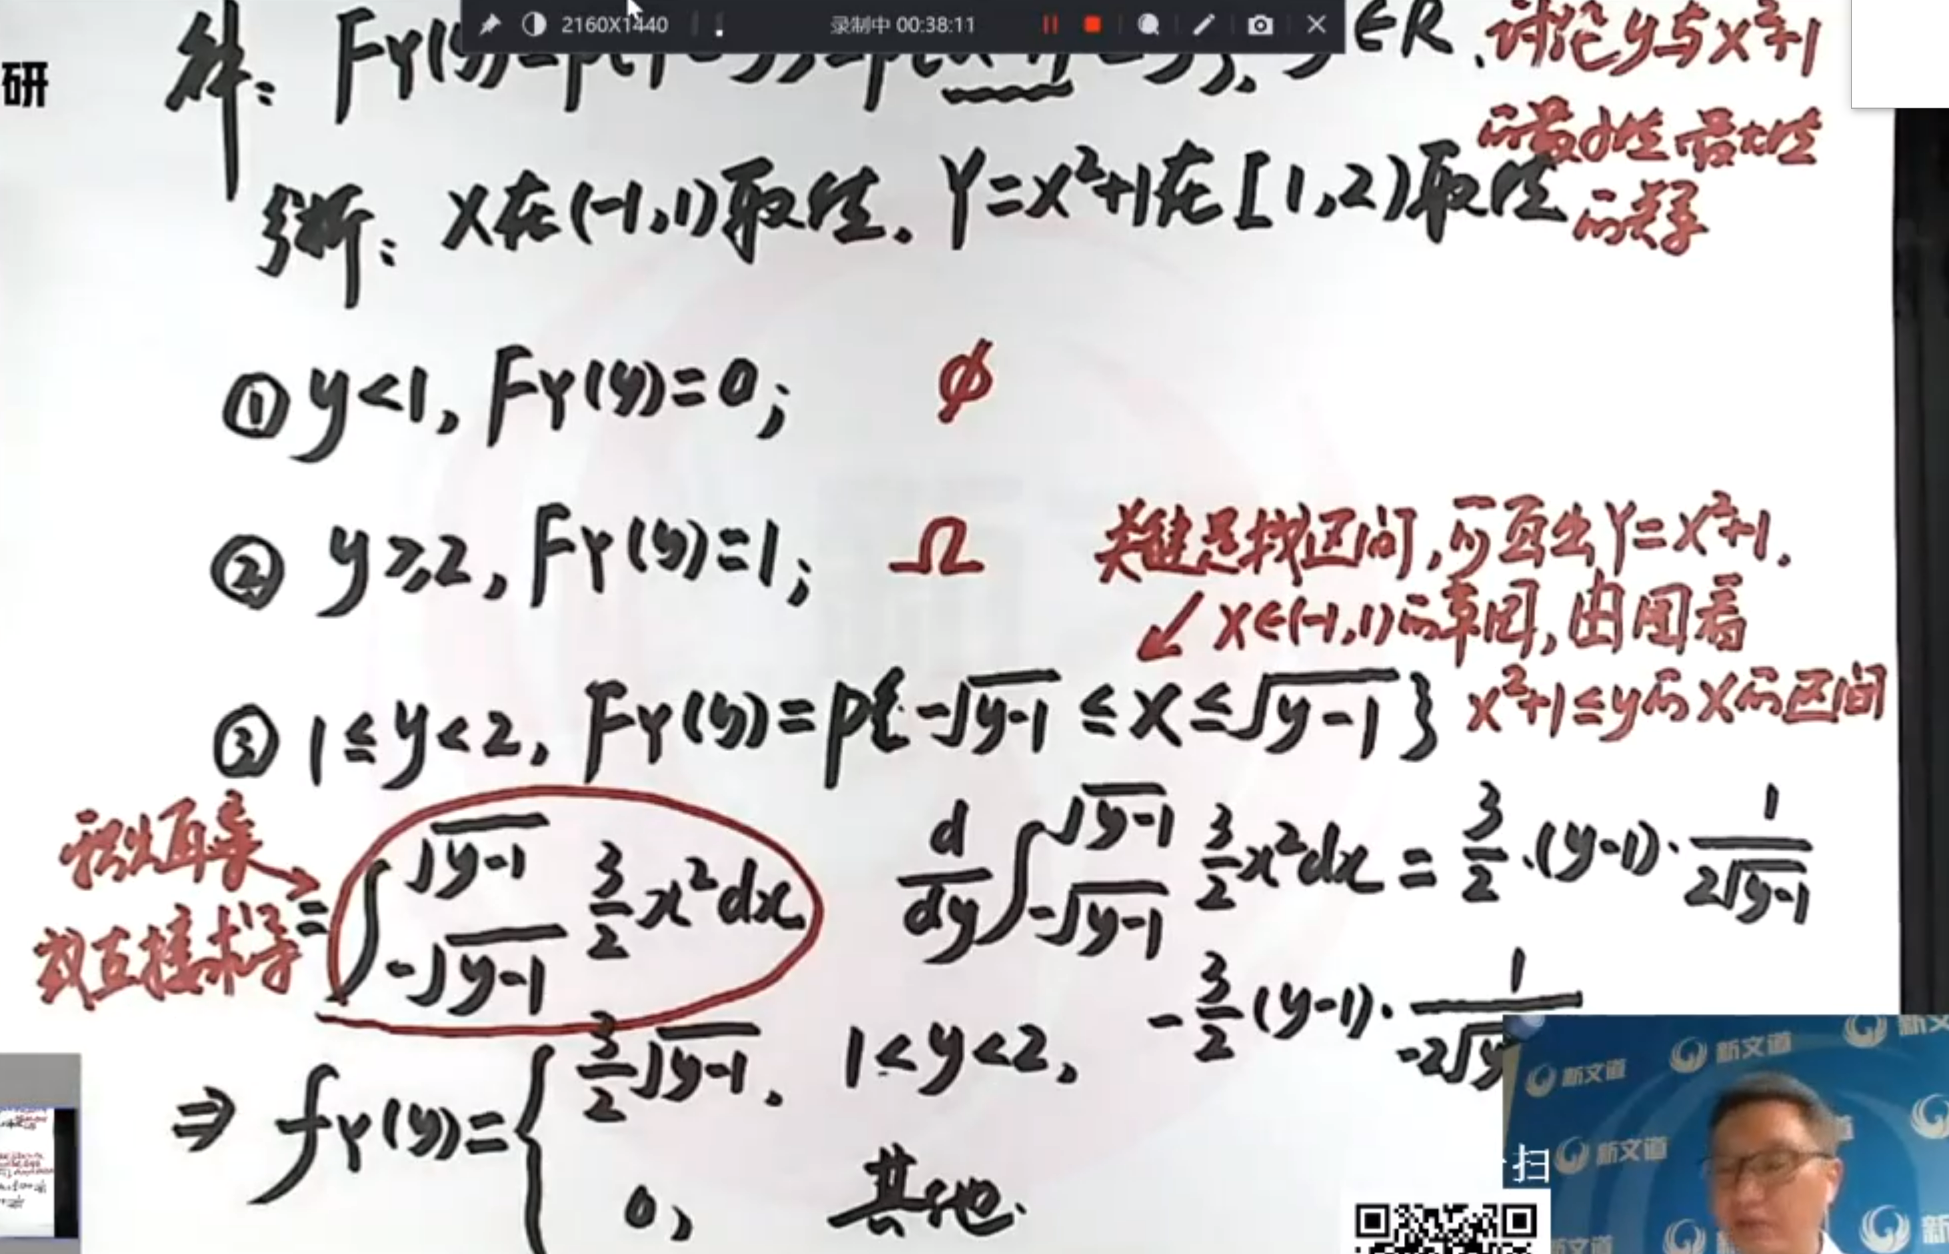 2160X1440 录制中 00:38:11
研
解: Fy(y)=P{Y≤y}=P{X²+1≤y}, y∈R. 讨论y与x²+1
的最小值最大值
的关系
分析: X在(-1,1)取值. Y=X²+1在[1,2)取值
① y<1, Fy(y)=0; ϕ
② y≥2, Fy(y)=1; Ω
关键是找区间,可画出Y=X²+1.
↙ X∈(-1,1)的草图,由图看
x²+1≤y的X的区间
③ 1≤y<2, Fy(y)=P{-√(y-1) ≤X≤√(y-1)}
积出再求
或直接求导
= ∫_{-√(y-1)}^{√(y-1)} 3/2 x²dx
d/dy ∫_{-√(y-1)}^{√(y-1)} 3/2 x²dx = 3/2·(y-1)·1/(2√(y-1))
-3/2(y-1)·1/(-2√y
⇒ fy(y)={ 3/2 √(y-1), 1<y<2,
0, 其他.
扫
新文道
新文道
新文道
新文道